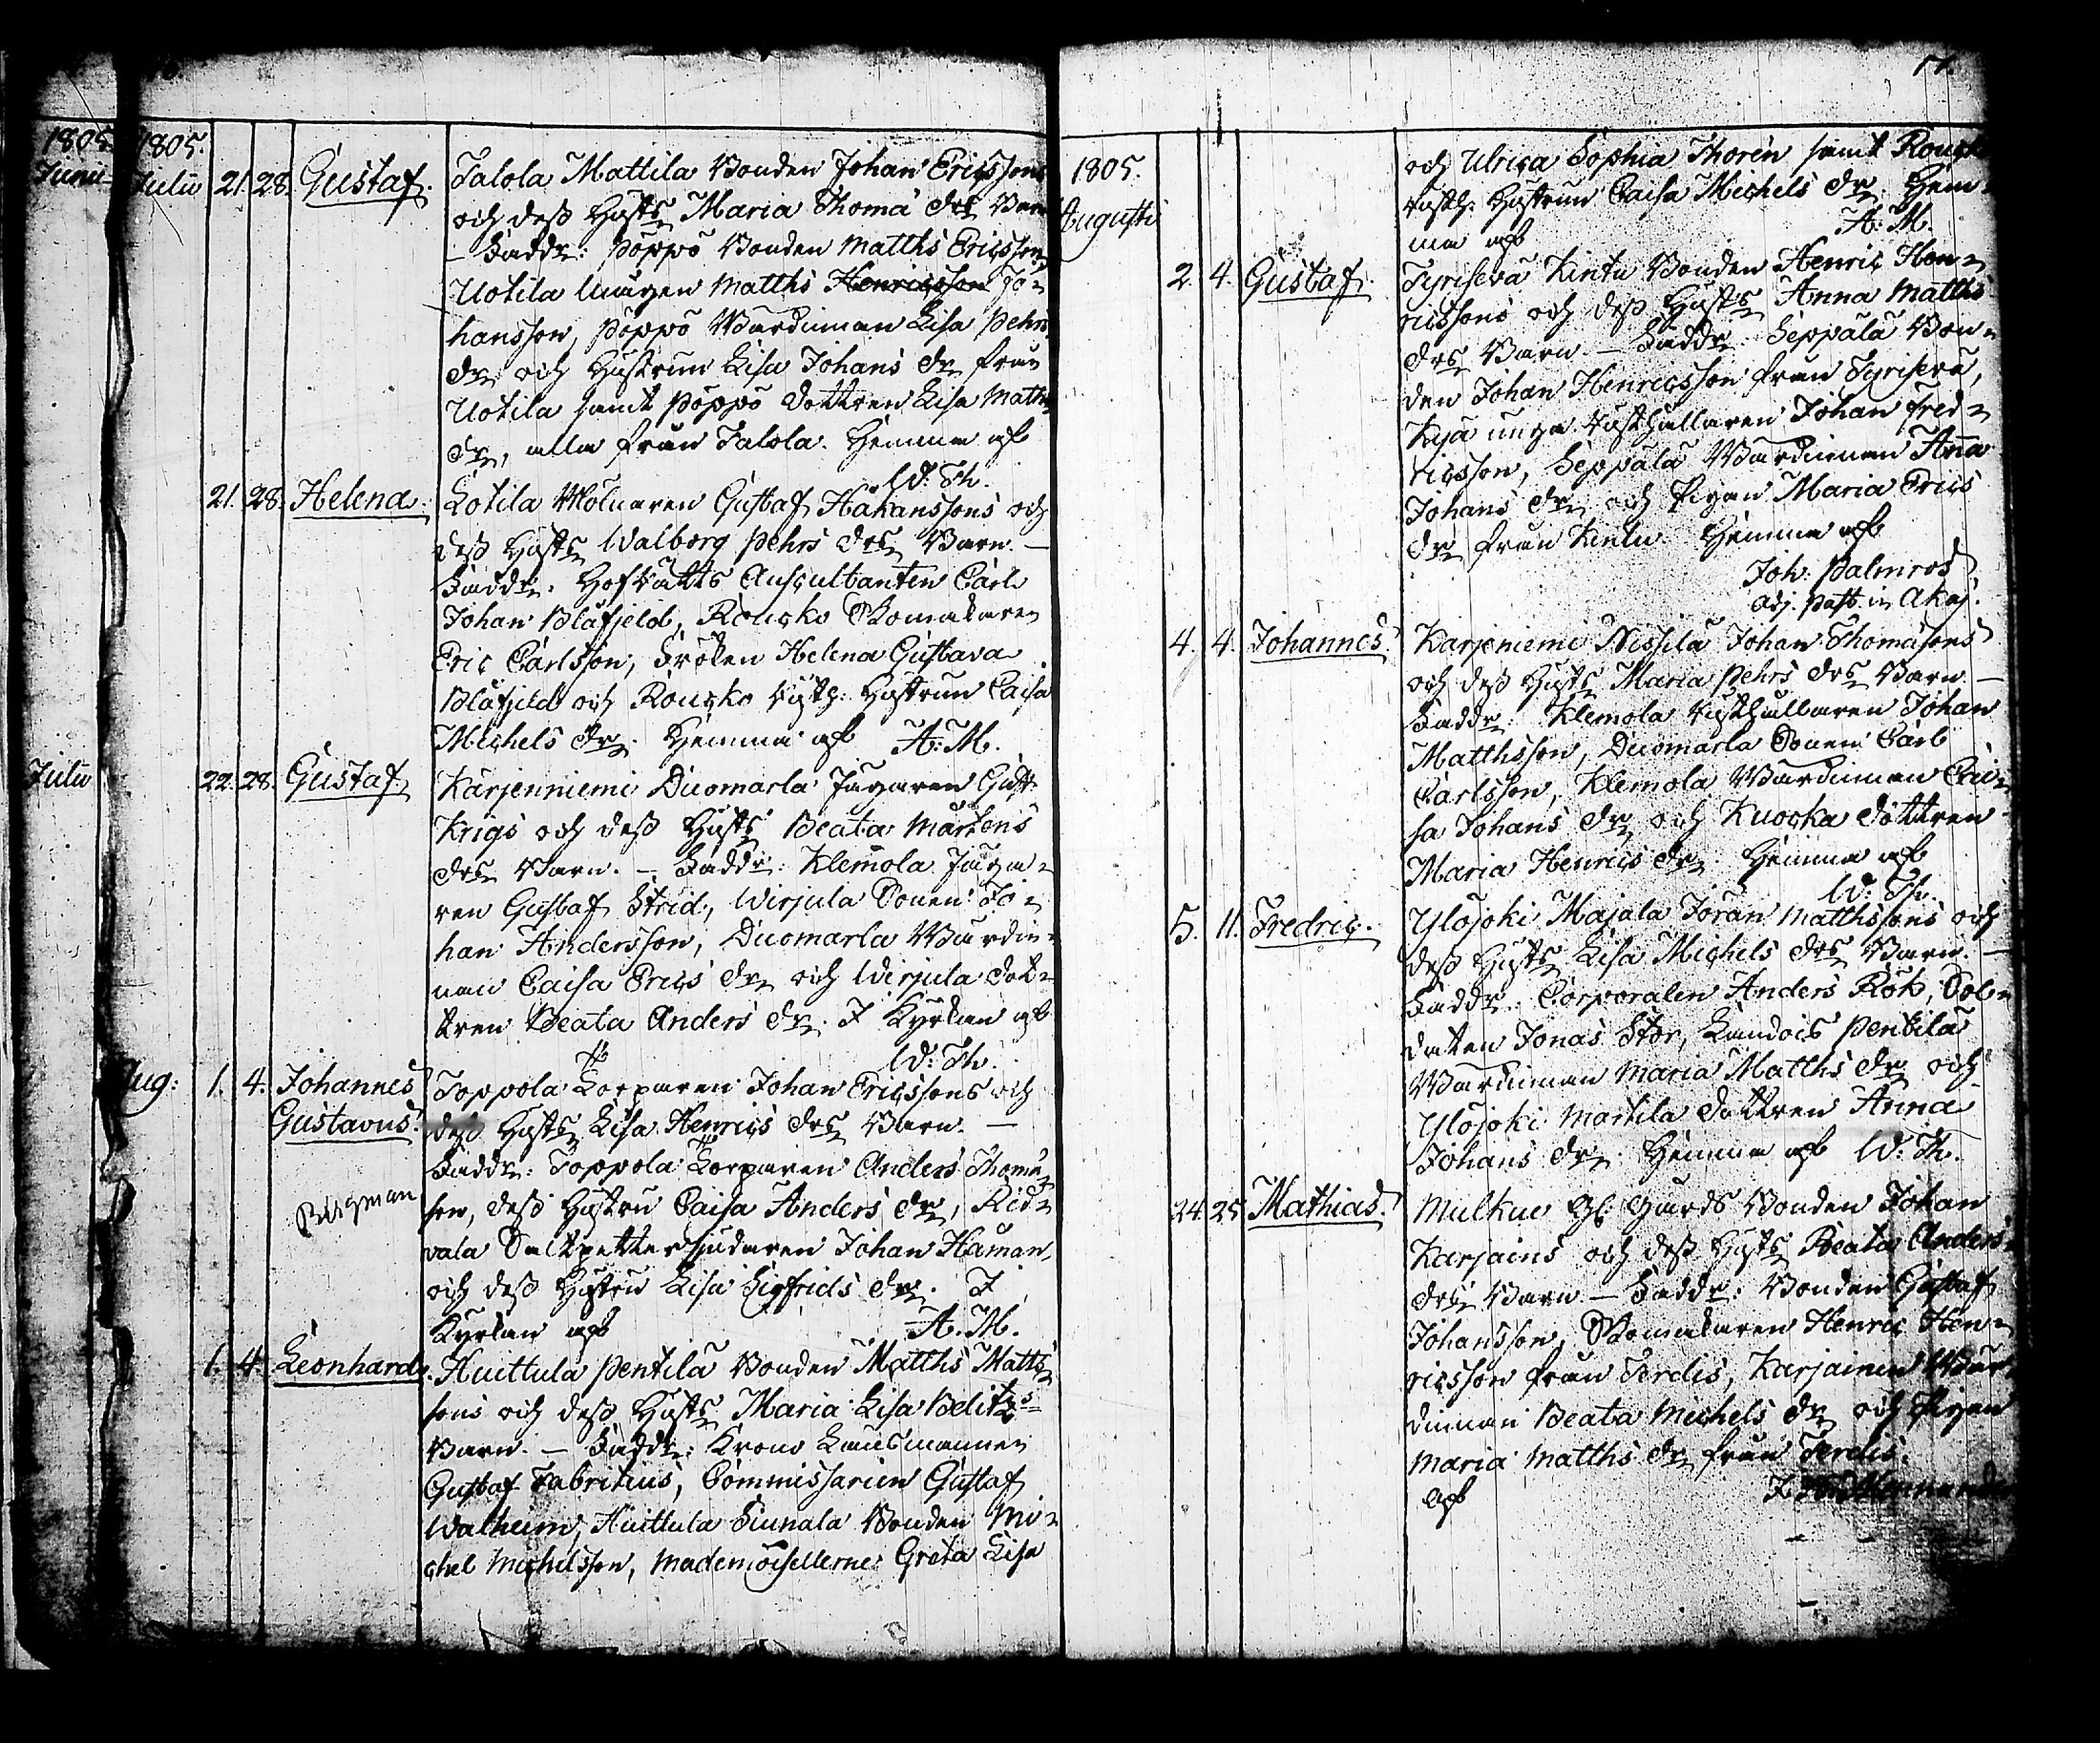 1805. 1805.
Junii Julii 21. 28. Gustaf. Talola Mattila Bonden Johan Ericssons
och dess Hustrs Maria Thomæ drs Barn
– Faddr: Poppo Bonden Matths Ericsson,
Uotila Unugen Matths Henricsson Jo=
hansson, Poppo Wärdinnan Lisa Pehrs
dr och Hustrun Lisa Johans dr från
Uotila samt Poppo dottren Lisa Matths
dr, alla från Talola. Hemma af
W: Th.
21. 28. Helena. Sotila Mölnaren Gustaf Håkanssons och
dess Hustrs Walborg Pehrs drs Barn. –
Faddr: Hofrätts Auscultanten Carl
Johan Blåfjeld, Roucko Skomakaren
Eric Carlsson, Fröken Helena Gustava
Blåfjeld och Roucko Hustrun Caisa
Michels dr. Hemma af A: M.
Julii 22. 28. Gustaf. Karjenniemi Duomarla Jägaren Gust.
Krigs och dess Hustrs Beata Mårtens
drs Barn. – Faddr: Klemola Jäga=
ren Gustaf Strid, Wirjula Sonen Jo=
han Andersson, Duomarla Wärdin=
nan Caisa Erics dr och Wirjula dot=
tren Beata Anders dr. I Kyrkan af
W: Th.
Aug: 1. 4. Johannes Toppola Torparen Johan Ericssons och
Gustavus. dess Hustrs Lisa Henrics drs Barn. –
Faddr: Toppola Torparen Anders Thomæ
Bergman son, dess Hustru Caisa Anders dr, Rid=
vala Saltpettersjudaren Johan Haman,
och dess Hustru Lisa Sigfrids dr. I
Kyrkan af A. M.
1. 4. Leonhard. Huittula Pentilä Bonden Matths Matts=
sons och dess Hustrs Maria Lisa Belitz
Barn. – Faddr: Krono Länsmannen
Gustaf Fabritius, Commissarien Gustaf
Walheim, Huittula Siunala Bonden Mi=
chel Michelsson, Mademoisellerne Greta Lisa
17.
1805. och Ulrica Sophia Thorén samt Roucko
Augusti Hustrun Caisa Michels dr. Hem=
ma af A: M.
2. 4. Gustaf. Tyriseva Kintu Bonden Henric Hen=
ricssons och dess Hustrs Anna Matths
drs Barn. – Faddr: Seppälä Bon=
den Johan Henricsson från Tyriseva,
Kyä unga Rusthållaren Johan Fred=
ricsson, Seppälä Wärdinnan Anna
Johans dr och Pigan Maria Erics
dr från Kintu. Hemma af
Joh: Palmros
Adj. Past. in Akaj.
4. 4. Johannes. Karjeniemi Nissilä Johan Thomæsons
och dess Hustrs Maria Pehrs drs Barn. –
Faddr: Klemola Rusthållaren Johan
Matthsson, Duomarla Sonen Carl
Carlsson, Klemola Wärdinnan Cai=
sa Johans dr och Kuocka dottren
Maria Henrics dr. Hemma af
W: Th.
5. 11. Fredric. Ylöjoki Majala Jöran Matthssons och
dess Hustrs Lisa Michels drs Barn. –
Faddr: Corporalen Anders Rök, Sol=
daten Jonas Stor, Landois Pentilä
Wärdinnan Maria Matths dr och
Ylöjoki Martila dottren Anna
Johans dr. Hemma af W: Th.
24. 25. Mathias. Mulkue Gårds Bonden Johan
Karjains och dess Hustrs Beata Anders
drs Barn. – Faddr: Bonden Gustaf
Johansson, Skomakaren Henric Hen=
ricsson från Terdis, Karjainen Wär=
dinnan Beata Michels dr och Pigan
Maria Matths dr från Terdis.
af